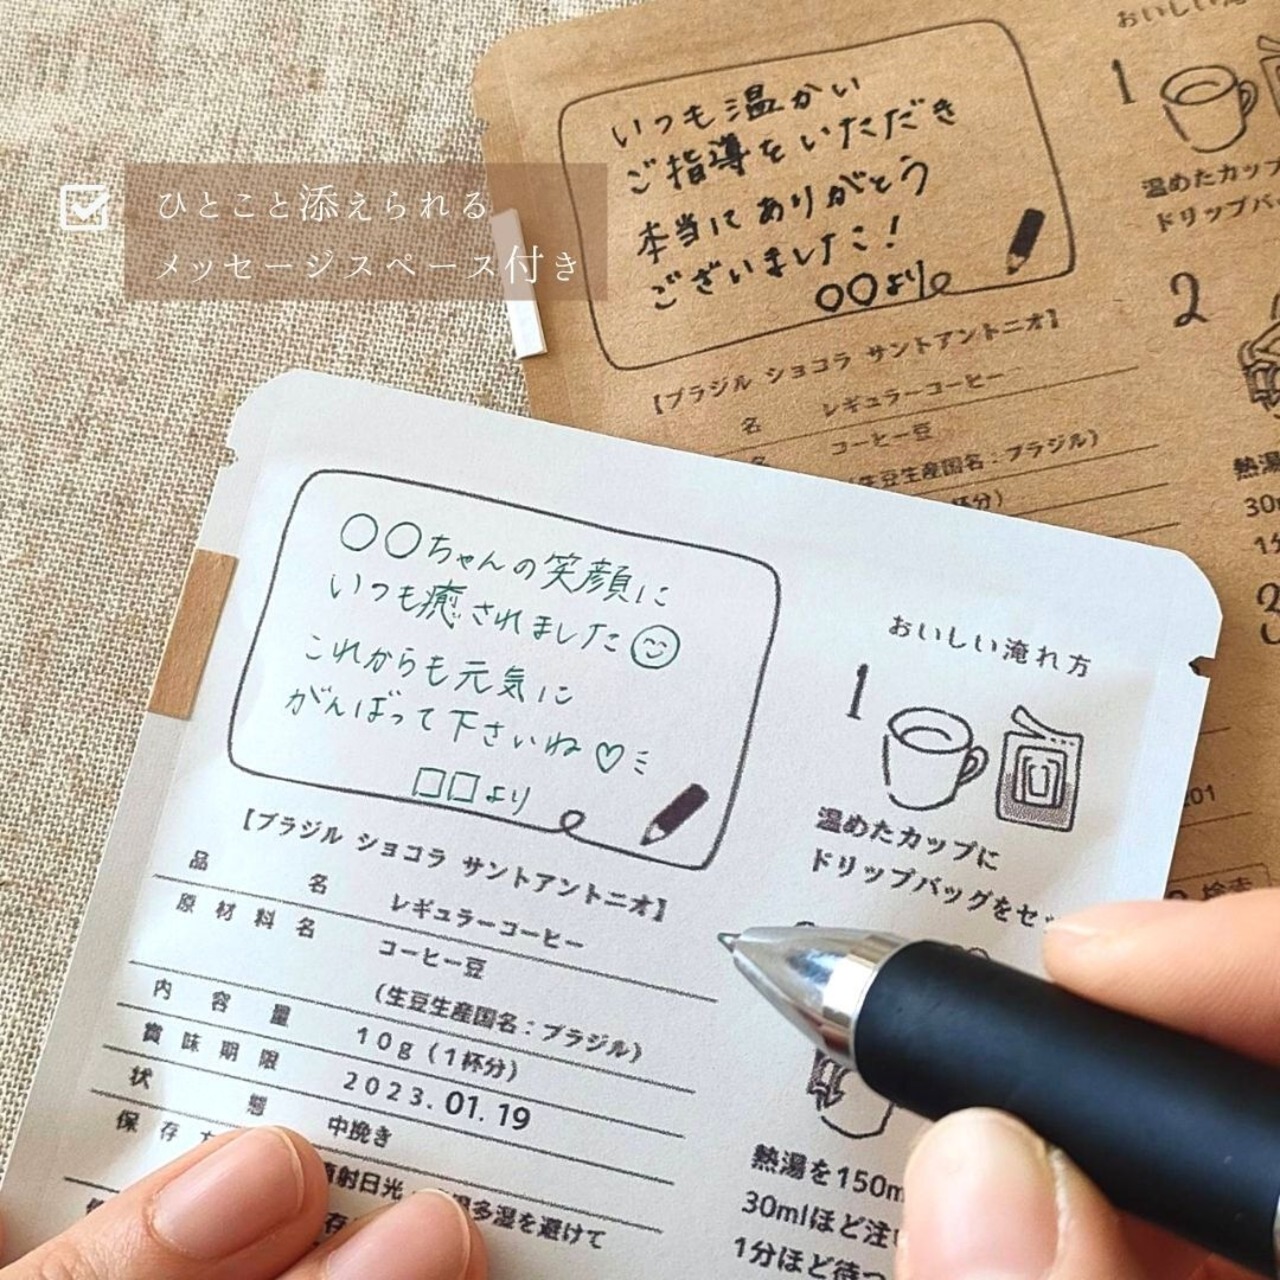 ひとこと添えられる
メッセージスペース付き
いつも温かい
ご指導をいただき
本当にありがとう
ございました!
○○より
【ブラジル ショコラ サントアントニオ】
名 レギュラーコーヒー
名 コーヒー豆
(生豆生産国名:ブラジル)
杯分)
おいしい淹
1
温めたカップ
ドリップバ
2
熱湯
30m
1分
3
201
検索
○○ちゃんの笑顔に
いつも癒されました
これからも元気に
がんばって下さいね♡
□□より
【ブラジル ショコラ サントアントニオ】
品名 レギュラーコーヒー
原材料名 コーヒー豆
(生豆生産国名:ブラジル)
内容量 10g(1杯分)
賞味期限 2023.01.19
状態 中挽き
保存方 直射日光 温多湿を避けて
存
おいしい淹れ方
1
温めたカップに
ドリップバッグをセッ
熱湯を150m
30mlほど注い
1分ほど待つ